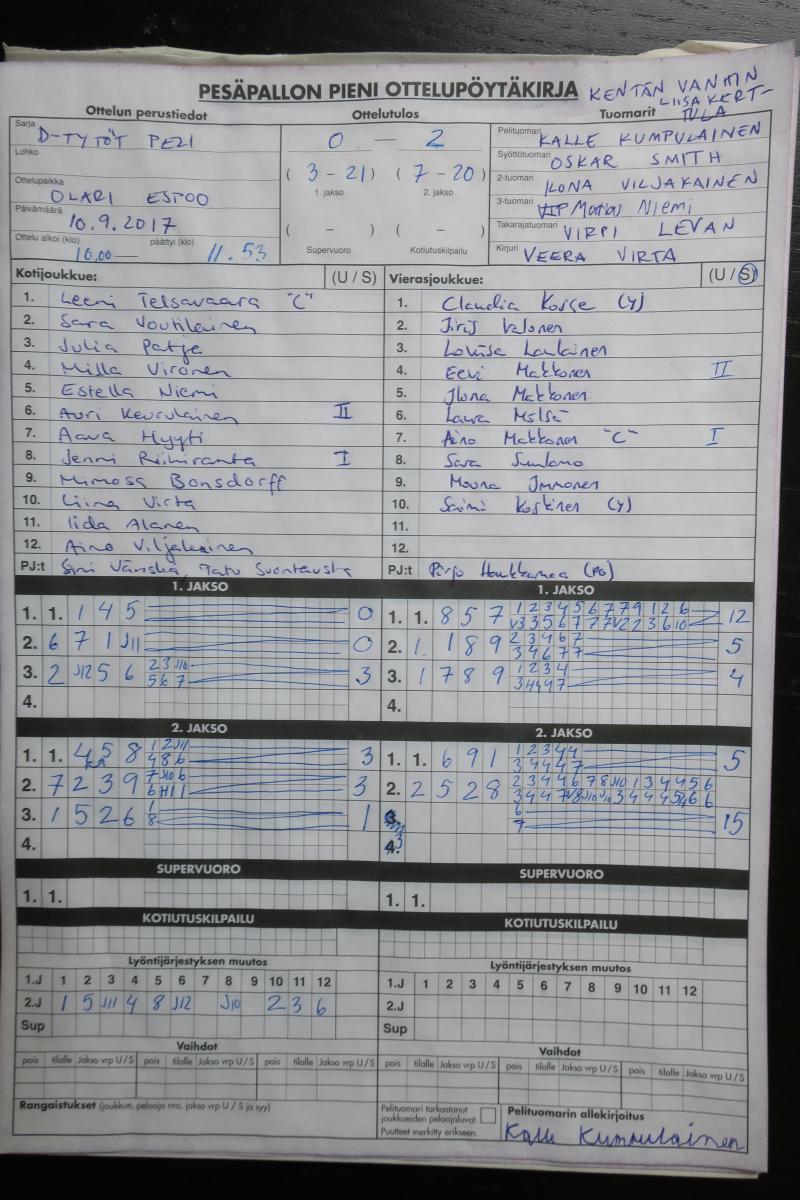 PESÄPALLON PIENI OTTELUPÖYTÄKIRJA KENTÄN VANHIN
LIISA KERT-
TULA
Ottelun perustiedot Ottelutulos Tuomarit
Sarja D-TYTÖT PEZI
Lohko
Ottelupaikka OLARI ESPOO
Päivämäärä 10.9.2017
Ottelu alkoi (klo) 10.00 päättyi (klo) 11.53
0 — 2
(3-21) (7-20)
1. jakso 2. jakso
( – ) ( – )
Supervuoro Kotiutuskilpailu
Pelituomari KALLE KUMPULAINEN
Syöttötuomari OSKAR SMITH
2-tuomari ILONA VILJAKAINEN
3-tuomari Niemi
Takarajatuomari VIRPI LEVAN
Kirjuri VEERA VIRTA
Kotijoukkue: (U / S)
1. Leeni Telsavaara "C"
2. Sara Voutilainen
3. Julia Patje
4. Milla Vironen
5. Estella Niemi
6. Auri Keurulainen II
7. Aava Hyyti
8. Jenni Riihiranta I
9. Mimosa Bonsdorff
10. Liina Virta
11. Iida Alanen
12. Aino Viljakainen
PJ:t Sini Vänskä, Tatu Suontausta
Vierasjoukkue: (U / S)
1. Claudia (Y)
2. Valonen
3. Louisa Laulainen
4. Eevi Makkonen II
5. Ilona Makkonen
6. Laura
7. Aino Makkonen "C" I
8. Sara
9. Moona Immonen
10. Saimi Koskinen (Y)
11.
12.
PJ:t (PG)
1. JAKSO
1. 1. 1 4 5 0
2. 6 7 1 J11 0
3. 2 J12 5 6 2 3 J10 3
5 6 7
4.
1. JAKSO
1. 1. 8 5 7 1 2 3 4 5 6 7 7 9 1 2 6 12
2. 1 1 8 9 2 3 4 6 7 5
3 4 6 7 7
3. 1 7 8 9 1 2 3 4 4
3 4 4 7
4.
2. JAKSO
1. 1. 4 5 8 1 2 J11 3
4 8 6
2. 7 2 3 9 7 J10 6 3
3. 1 5 2 6 1 1
8
4.
2. JAKSO
1. 1. 6 9 1 1 2 3 4 4 5
3 4 4 4 7
2. 2 5 2 8 2 3 4 4 6 7 8 J10 1 3 4 4 5 6
6 15
7
3
SUPERVUORO
1. 1.
SUPERVUORO
1. 1.
KOTIUTUSKILPAILU
KOTIUTUSKILPAILU
Lyöntijärjestyksen muutos
1.J 1 2 3 4 5 6 7 8 9 10 11 12
2.J 1 5 J11 4 8 J12 J10 2 3 6
Sup
Lyöntijärjestyksen muutos
1.J 1 2 3 4 5 6 7 8 9 10 11 12
2.J
Sup
Vaihdot
pois tilalle Jakso vrp U / S pois tilalle Jakso vrp U / S pois tilalle Jakso vrp U / S
Vaihdot
pois tilalle Jakso vrp U / S pois tilalle Jakso vrp U / S pois tilalle Jakso vrp U / S
Rangaistukset (joukkue, pelaaja nro, jakso vrp U / S ja syy)
Pelituomari tarkastanut
joukkueiden pelaajaluvat.
Puutteet merkitty erikseen.
Pelituomarin allekirjoitus
Kalle Kumpulainen